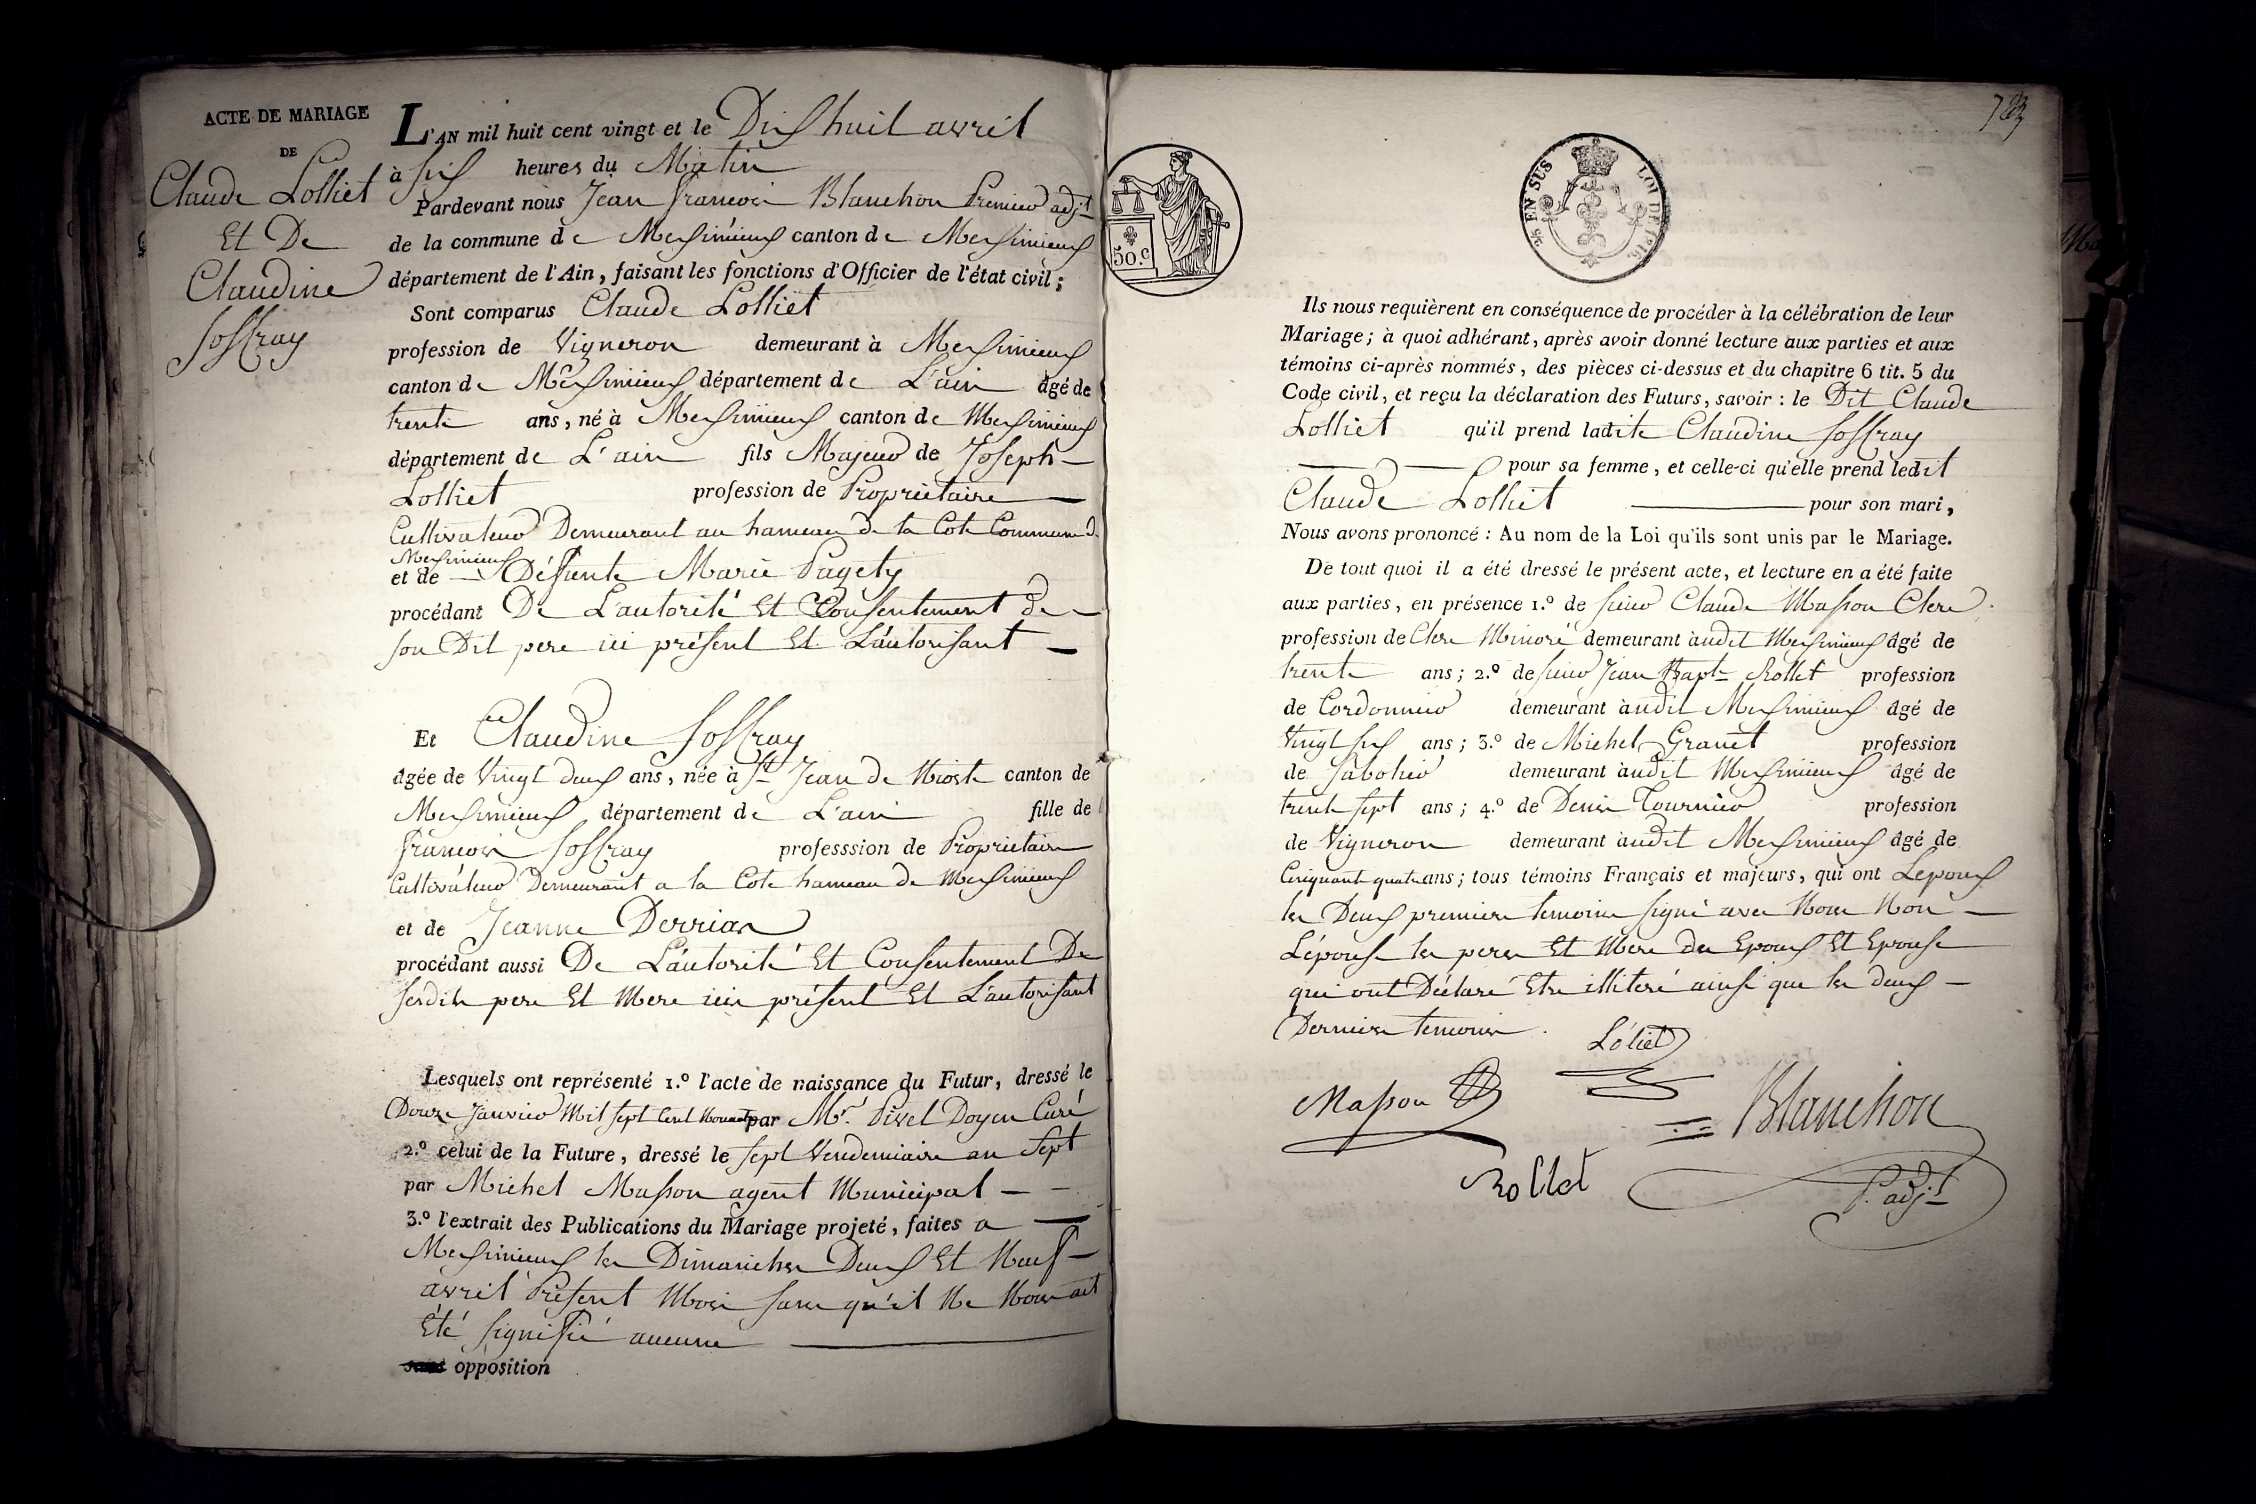 ACTE DE MARIAGE
DE
Claude Lolliet
Et De
Claudine
Joffray
L'AN mil huit cent vingt et le Dix huit avril
à six heures du Matin
Pardevant nous Jean francois Blanchon Premier adjt
de la commune de Meximieux canton de Meximieux
département de l'Ain, faisant les fonctions d'Officier de l'état civil;
Sont comparus Claude Lolliet
profession de Vigneron demeurant à Meximieux
canton de Meximieux département de L'ain âgé de
trente ans, né à Meximieux canton de Meximieux
département de L'ain fils Majeur de Joseph
Lolliet profession de Propriétaire
Cultivateur Demeurant au hameau de la Cote Commune d.
Meximieux
et de Défunte Marie Pagety
procédant De L'autorité Et Consentement de
son Dit pere ici présent Et L'autorisant
Et Claudine Joffray
âgée de Vingt deux ans, née à St Jean de Nioste canton de
Meximieux département de L'ain fille de
francois Joffray professsion de Proprietaire
Cultivateur Demeurant a la Cote hameau de Meximieux
et de Jeanne Derrias
procédant aussi De L'autorité Et Consentement De
sesdits pere Et Mere ici présent Et L'autorisant
Lesquels ont représenté 1.º l'acte de naissance du Futur, dressé le
Douze Janvier Mil sept Cent Nonante par Mr. Pivet Doyen Curé
2.º celui de la Future, dressé le sept Vendemiaire an Sept
par Michel Masson agent Municipal
3.º l'extrait des Publications du Mariage projeté, faites a
Meximieux les Dimanches Deux Et Neuf
avril Présent Mois sans qu'il Ne Nous ait
Eté signifié aucune
sans opposition
50.c
EN SUS
LOI DE 1816
Ils nous requièrent en conséquence de procéder à la célébration de leur
Mariage; à quoi adhérant, après avoir donné lecture aux parties et aux
témoins ci-après nommés, des pièces ci-dessus et du chapitre 6 tit. 5 du
Code civil, et reçu la déclaration des Futurs, savoir: le Dit Claude
Lolliet qu'il prend ladite Claudine Joffray
pour sa femme, et celle-ci qu'elle prend ledit
Claude Lolliet pour son mari,
Nous avons prononcé: Au nom de la Loi qu'ils sont unis par le Mariage.
De tout quoi il a été dressé le présent acte, et lecture en a été faite
aux parties, en présence 1.º de sieur Claude Masson Clerc
profession de Clerc Minoré demeurant audit Meximieux âgé de
trente ans; 2.º de sieur Jean Bapte Rollet profession
de Cordonnier demeurant audit Meximieux âgé de
Vingt six ans; 3.º de Michel Granet profession
de Sabotier demeurant audit Meximieux âgé de
trente sept ans; 4.º de Denis Tournier profession
de Vigneron demeurant audit Meximieux âgé de
Cinquante quatre ans; tous témoins Français et majeurs, qui ont Lepoux
les Deux premiers temoins signé avec Nous Non
Lépouse les peres Et Mere des Epoux Et Epouse
qui ont Déclaré Etre illiteré ainsi que les deux
Derniers temoins.
Loliet
Masson
Blanchon
Rollet
P. adjt